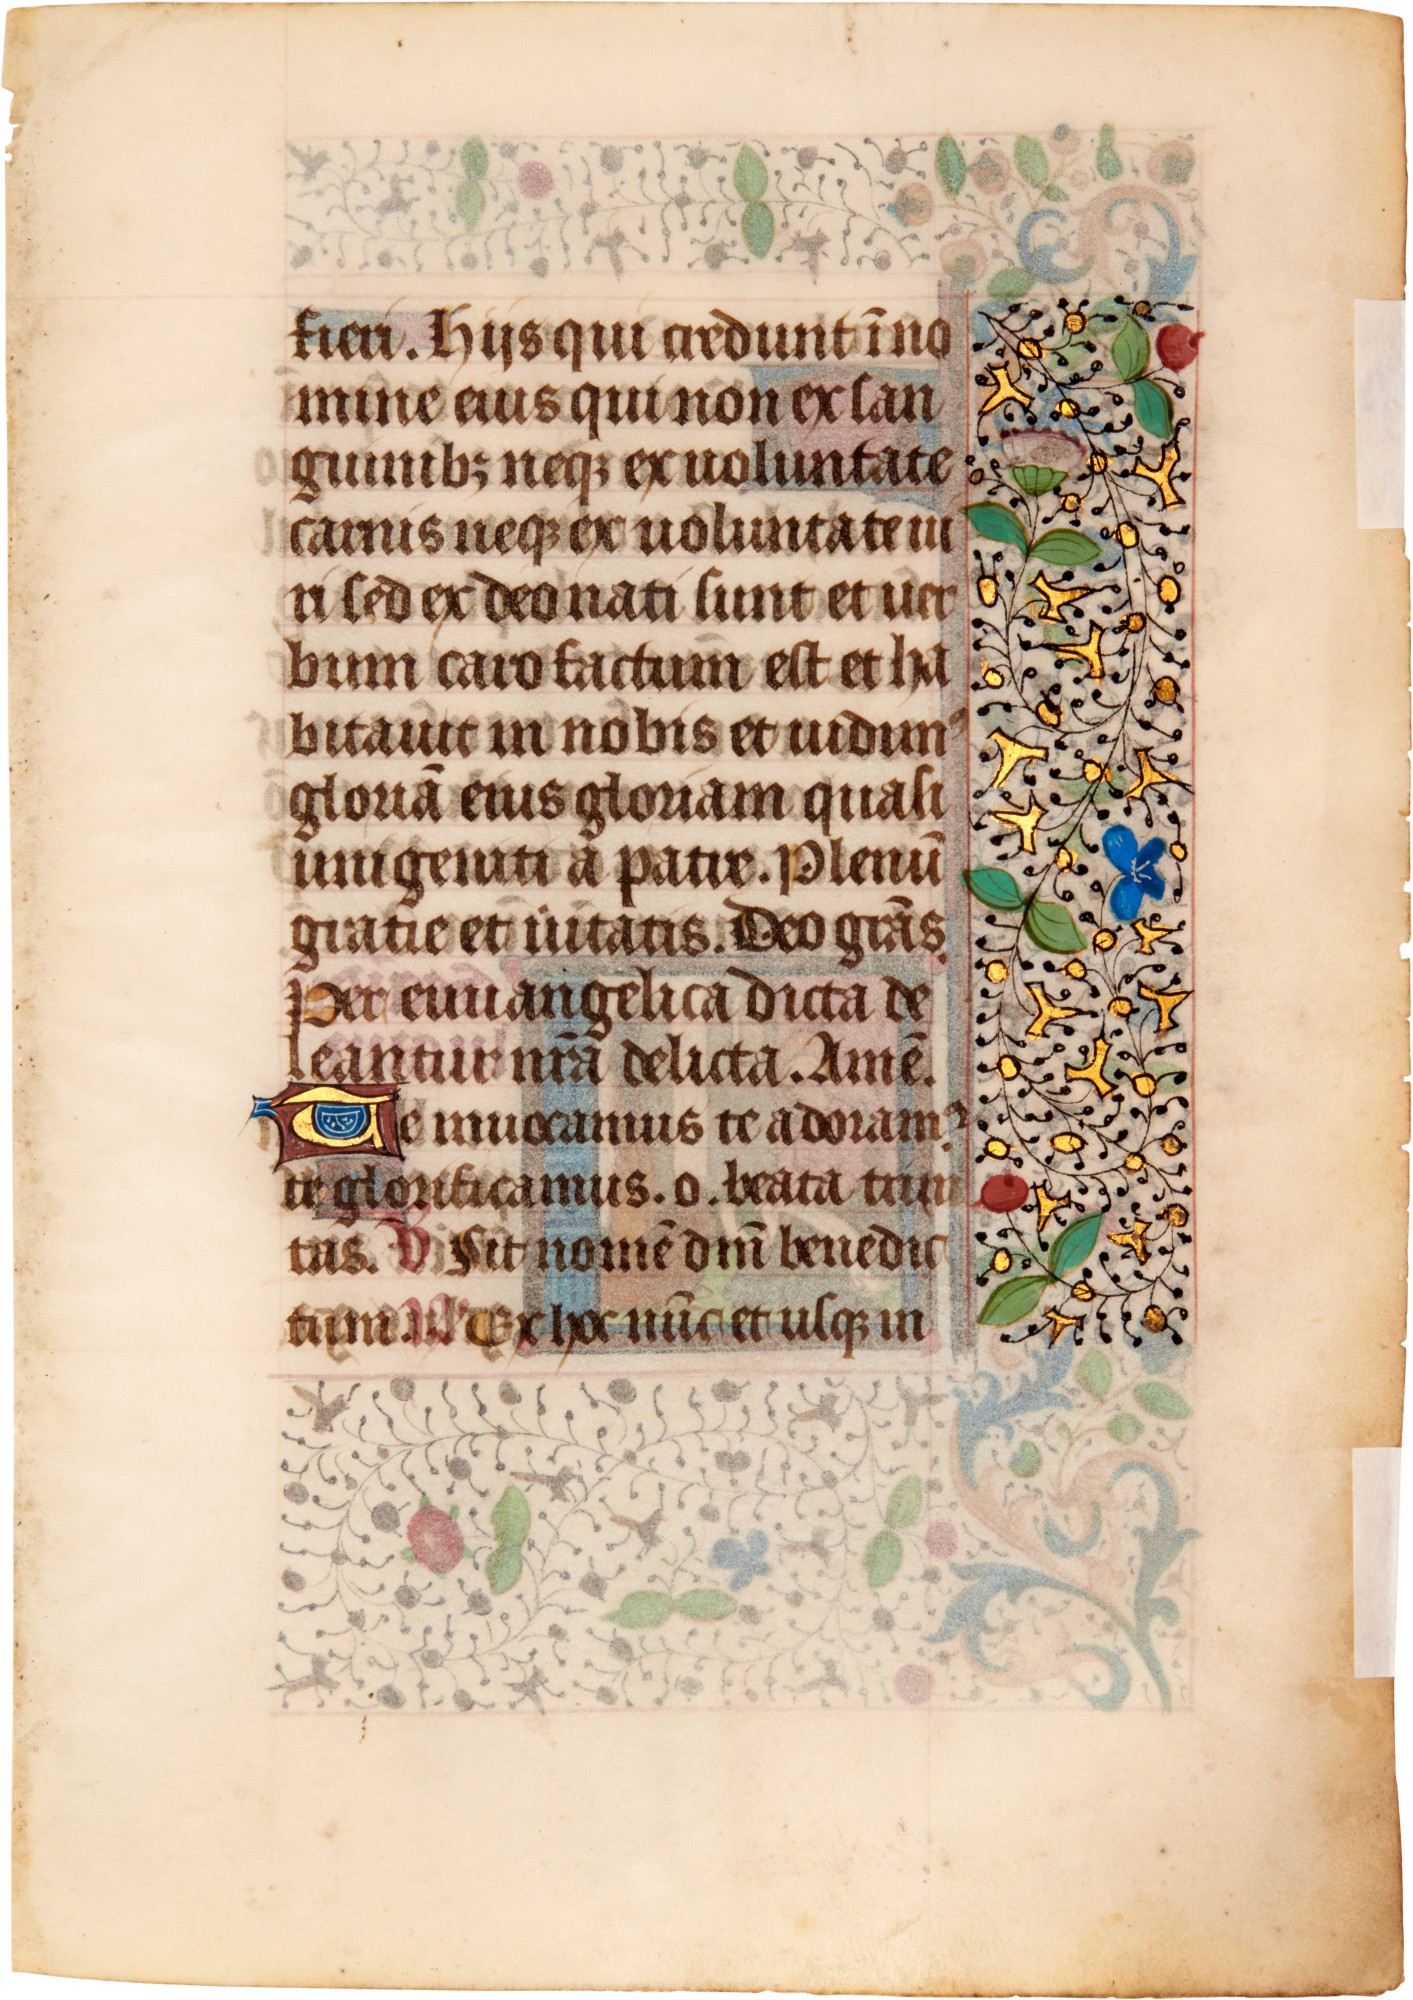 fieri. Hijs qui credunt ī no
mine eius qui non ex san
guinibꝫ neqꝫ ex uoluntate
carnis neqꝫ ex uoluntate ui
ri sed ex deo nati sunt et uer
bum caro factum est et ha
bitauit in nobis et uidimꝰ
gloriā eius gloriam quasi
unigeniti a patre. Plenū
gratie et ūitatis. Deo grās.
Per euuangelica dicta de
leantur nrā delicta. Amē.
Te inuocamus te adoramꝰ
te glorificamus. o. beata trini
tas. V̷ Sit nomē dnī benedic
tum. R̷ Ex hoc nūc et usqꝫ in